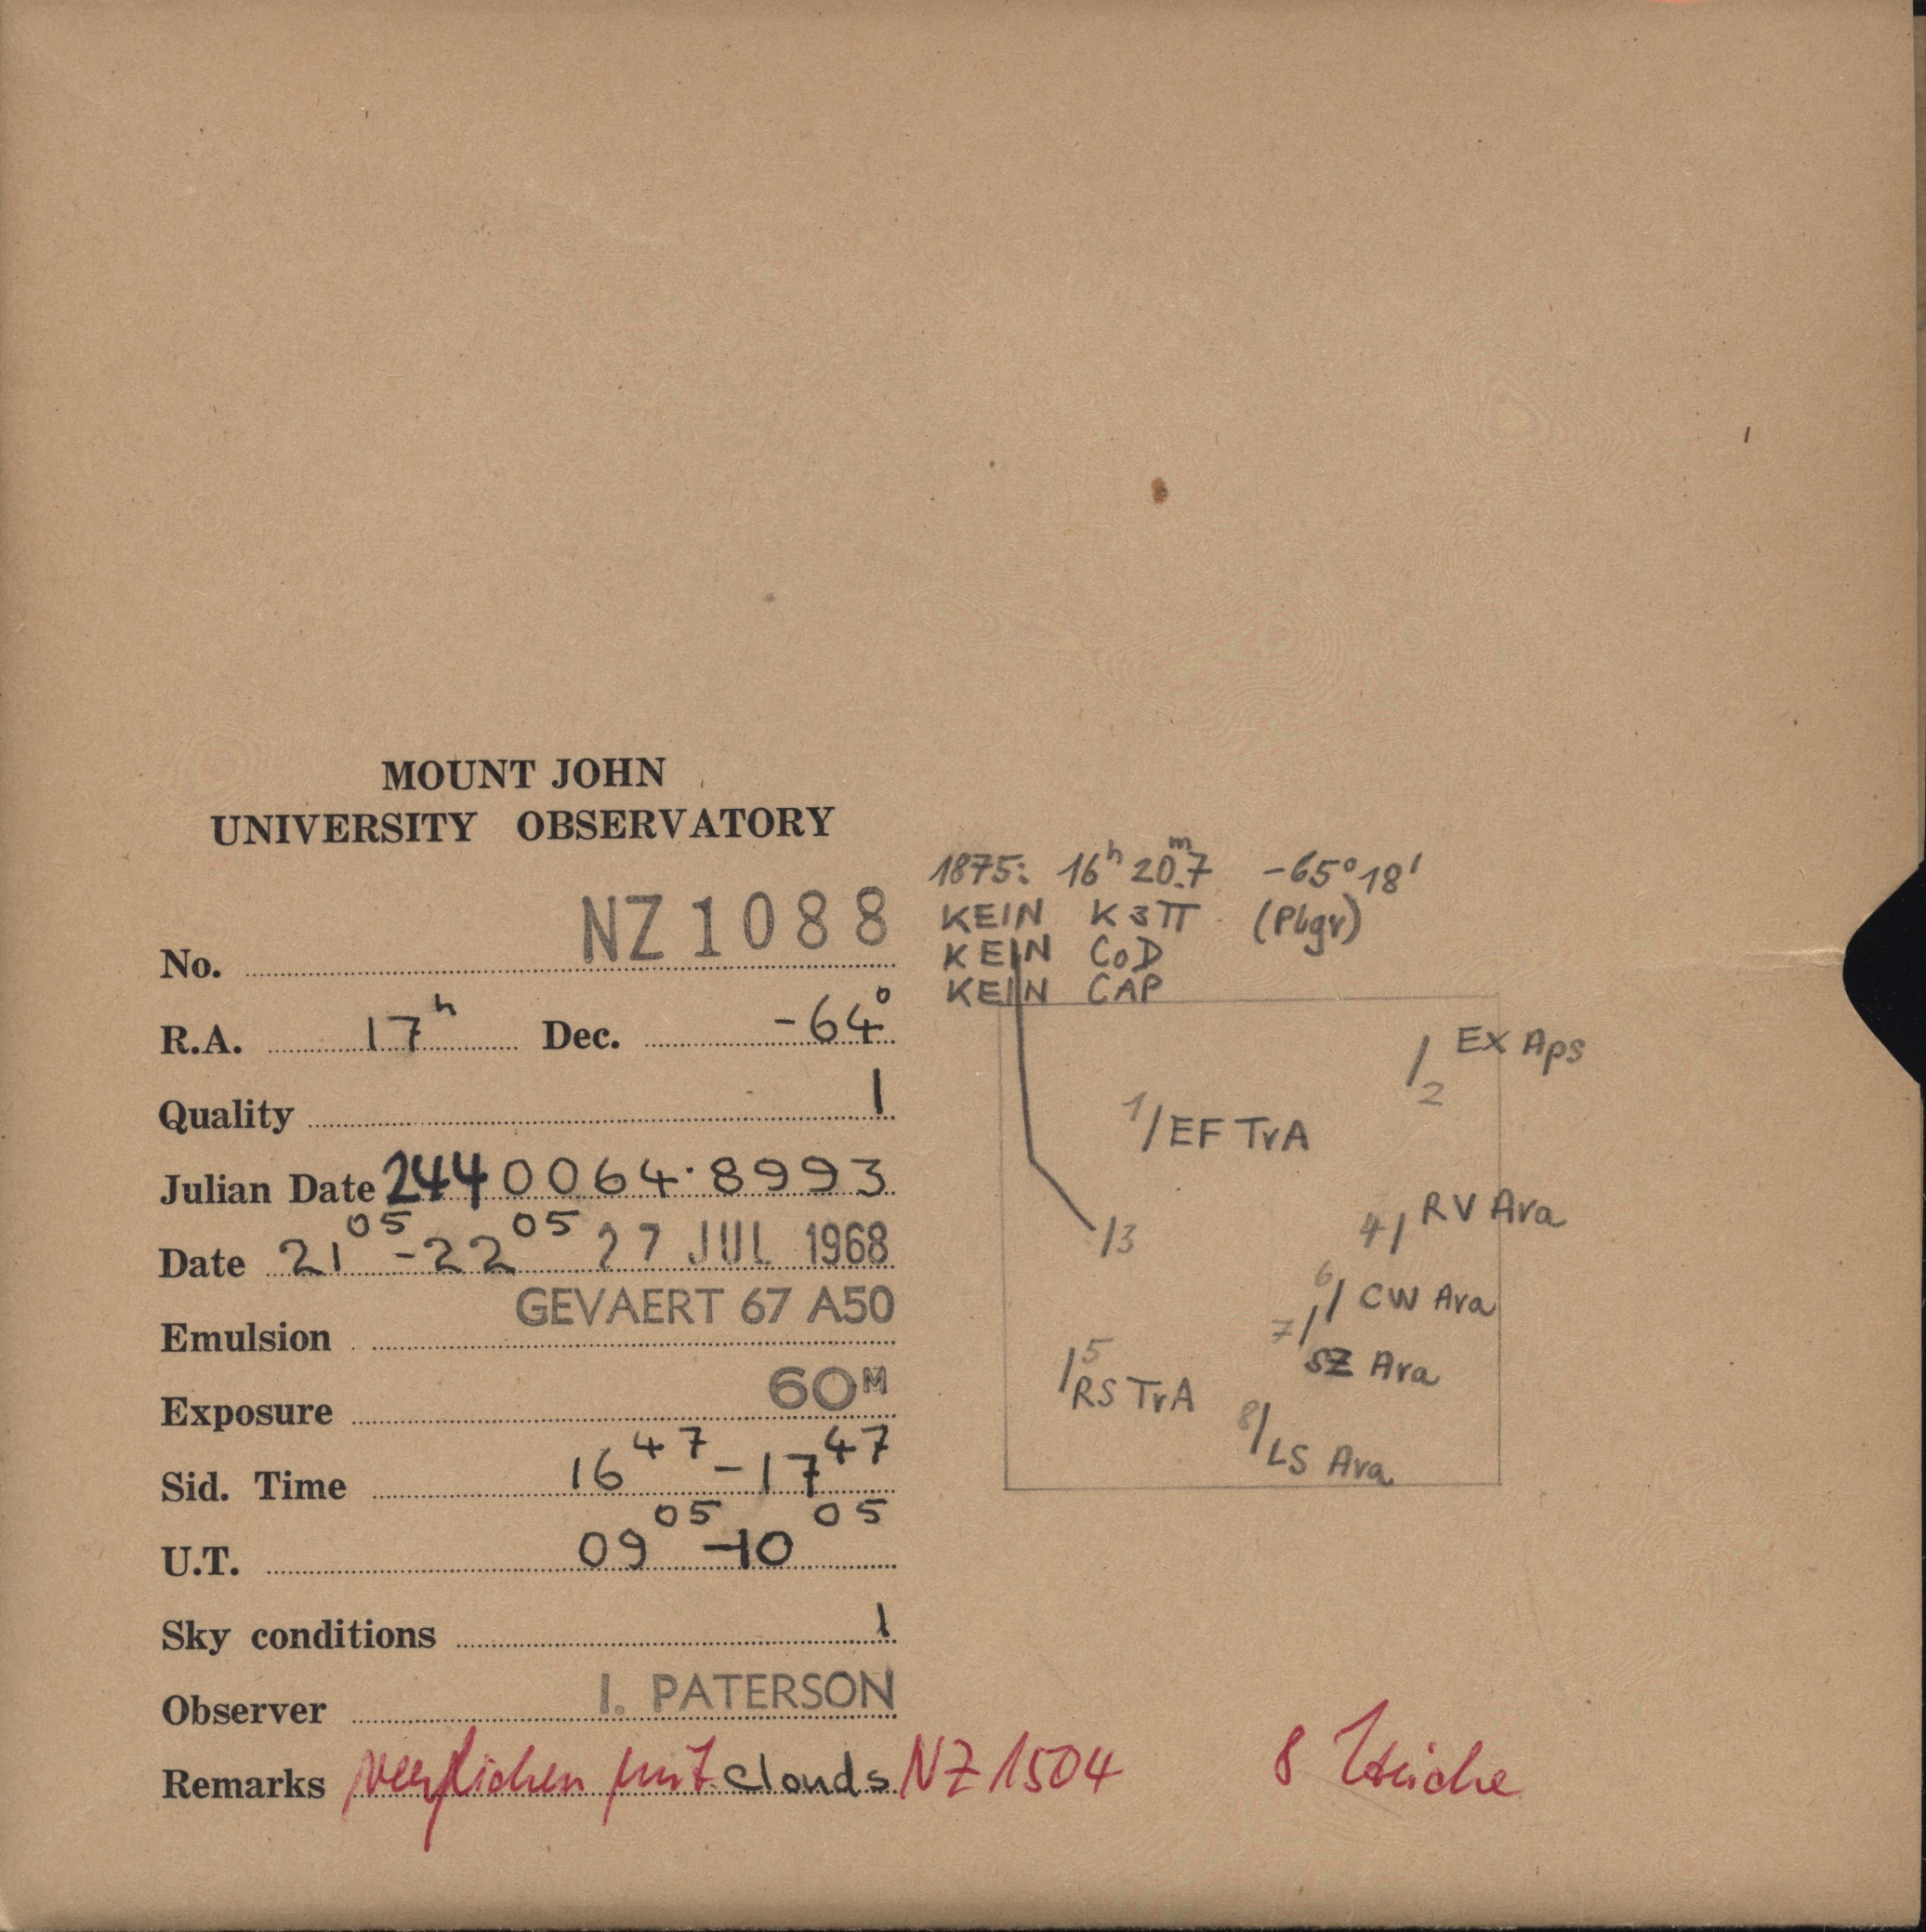 MOUNT JOHN
UNIVERSITY OBSERVATORY
No. NZ 1088
R.A. 17h Dec. -64°
Quality 1
Julian Date 2440064.8993
Date 21 05 - 22 05 27 JUL 1968
GEVAERT 67 A50
Emulsion
Exposure 60M
Sid. Time 16 47 - 17 47
U.T. 09 05 - 10 05
Sky conditions 1
Observer I. PATERSON
Remarks verglichen mit clouds NZ 1504
8 Striche
1875: 16h 20m.7 -65°18'
KEIN K3Π (Pbgr)
KEIN CoD
KEIN CAP
/2 EX Aps
1/ EF TrA
/3
4/ RV Ara
6/ CW Ara
7/ SZ Ara
/5 RS TrA
8/ LS Ara